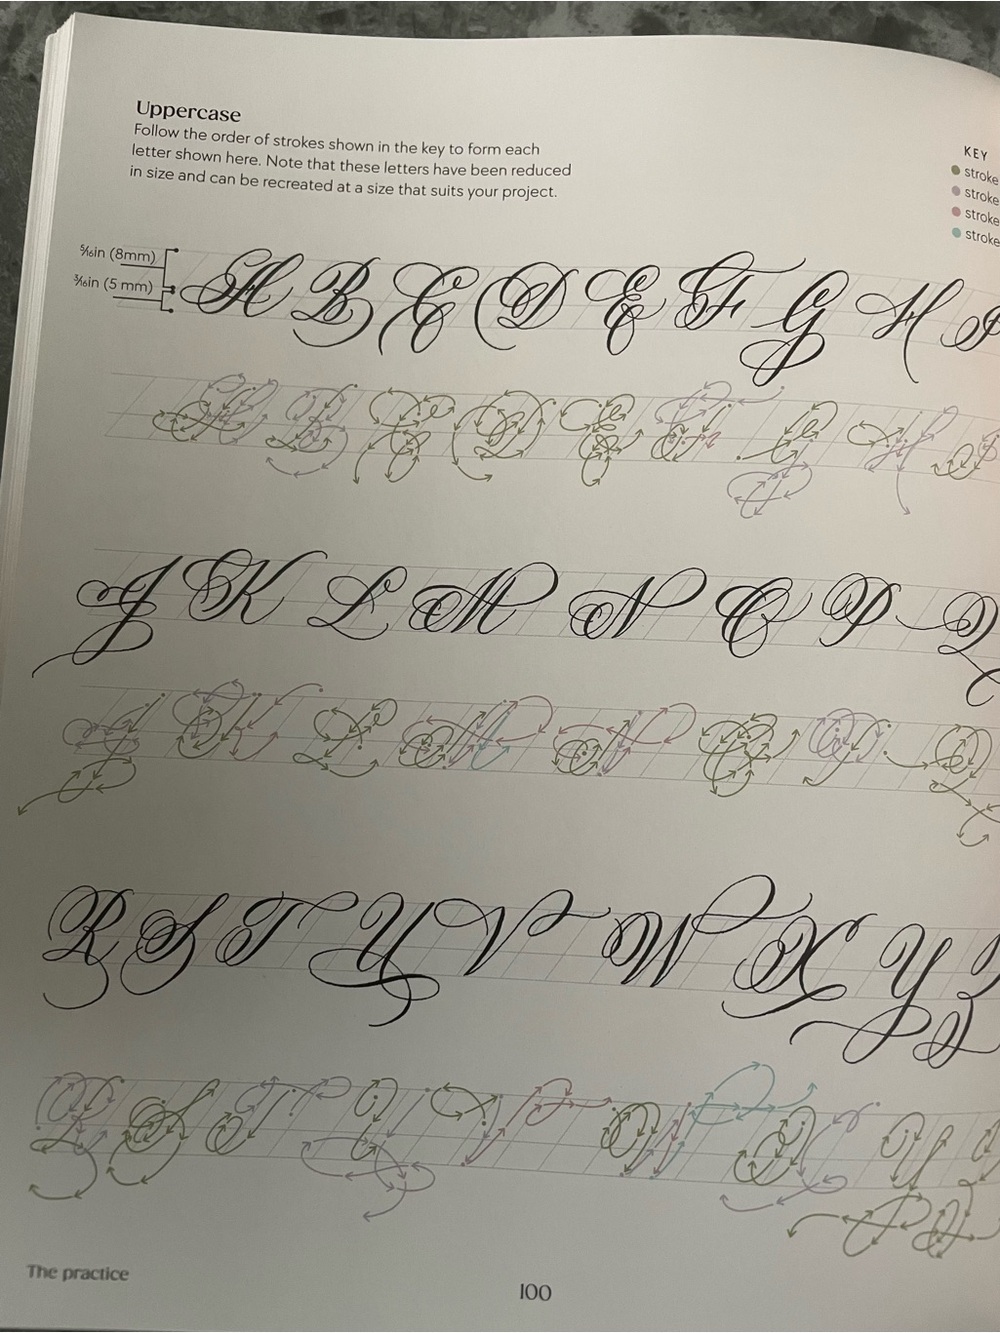 Uppercase
Follow the order of strokes shown in the key to form each
letter shown here. Note that these letters have been reduced
in size and can be recreated at a size that suits your project.
KEY
stroke
stroke
stroke
stroke
5/16in (8mm)
3/16in (5 mm)
A B C D E F G H I
J K L M N O P Q
R S T U V W X Y Z
The practice
100